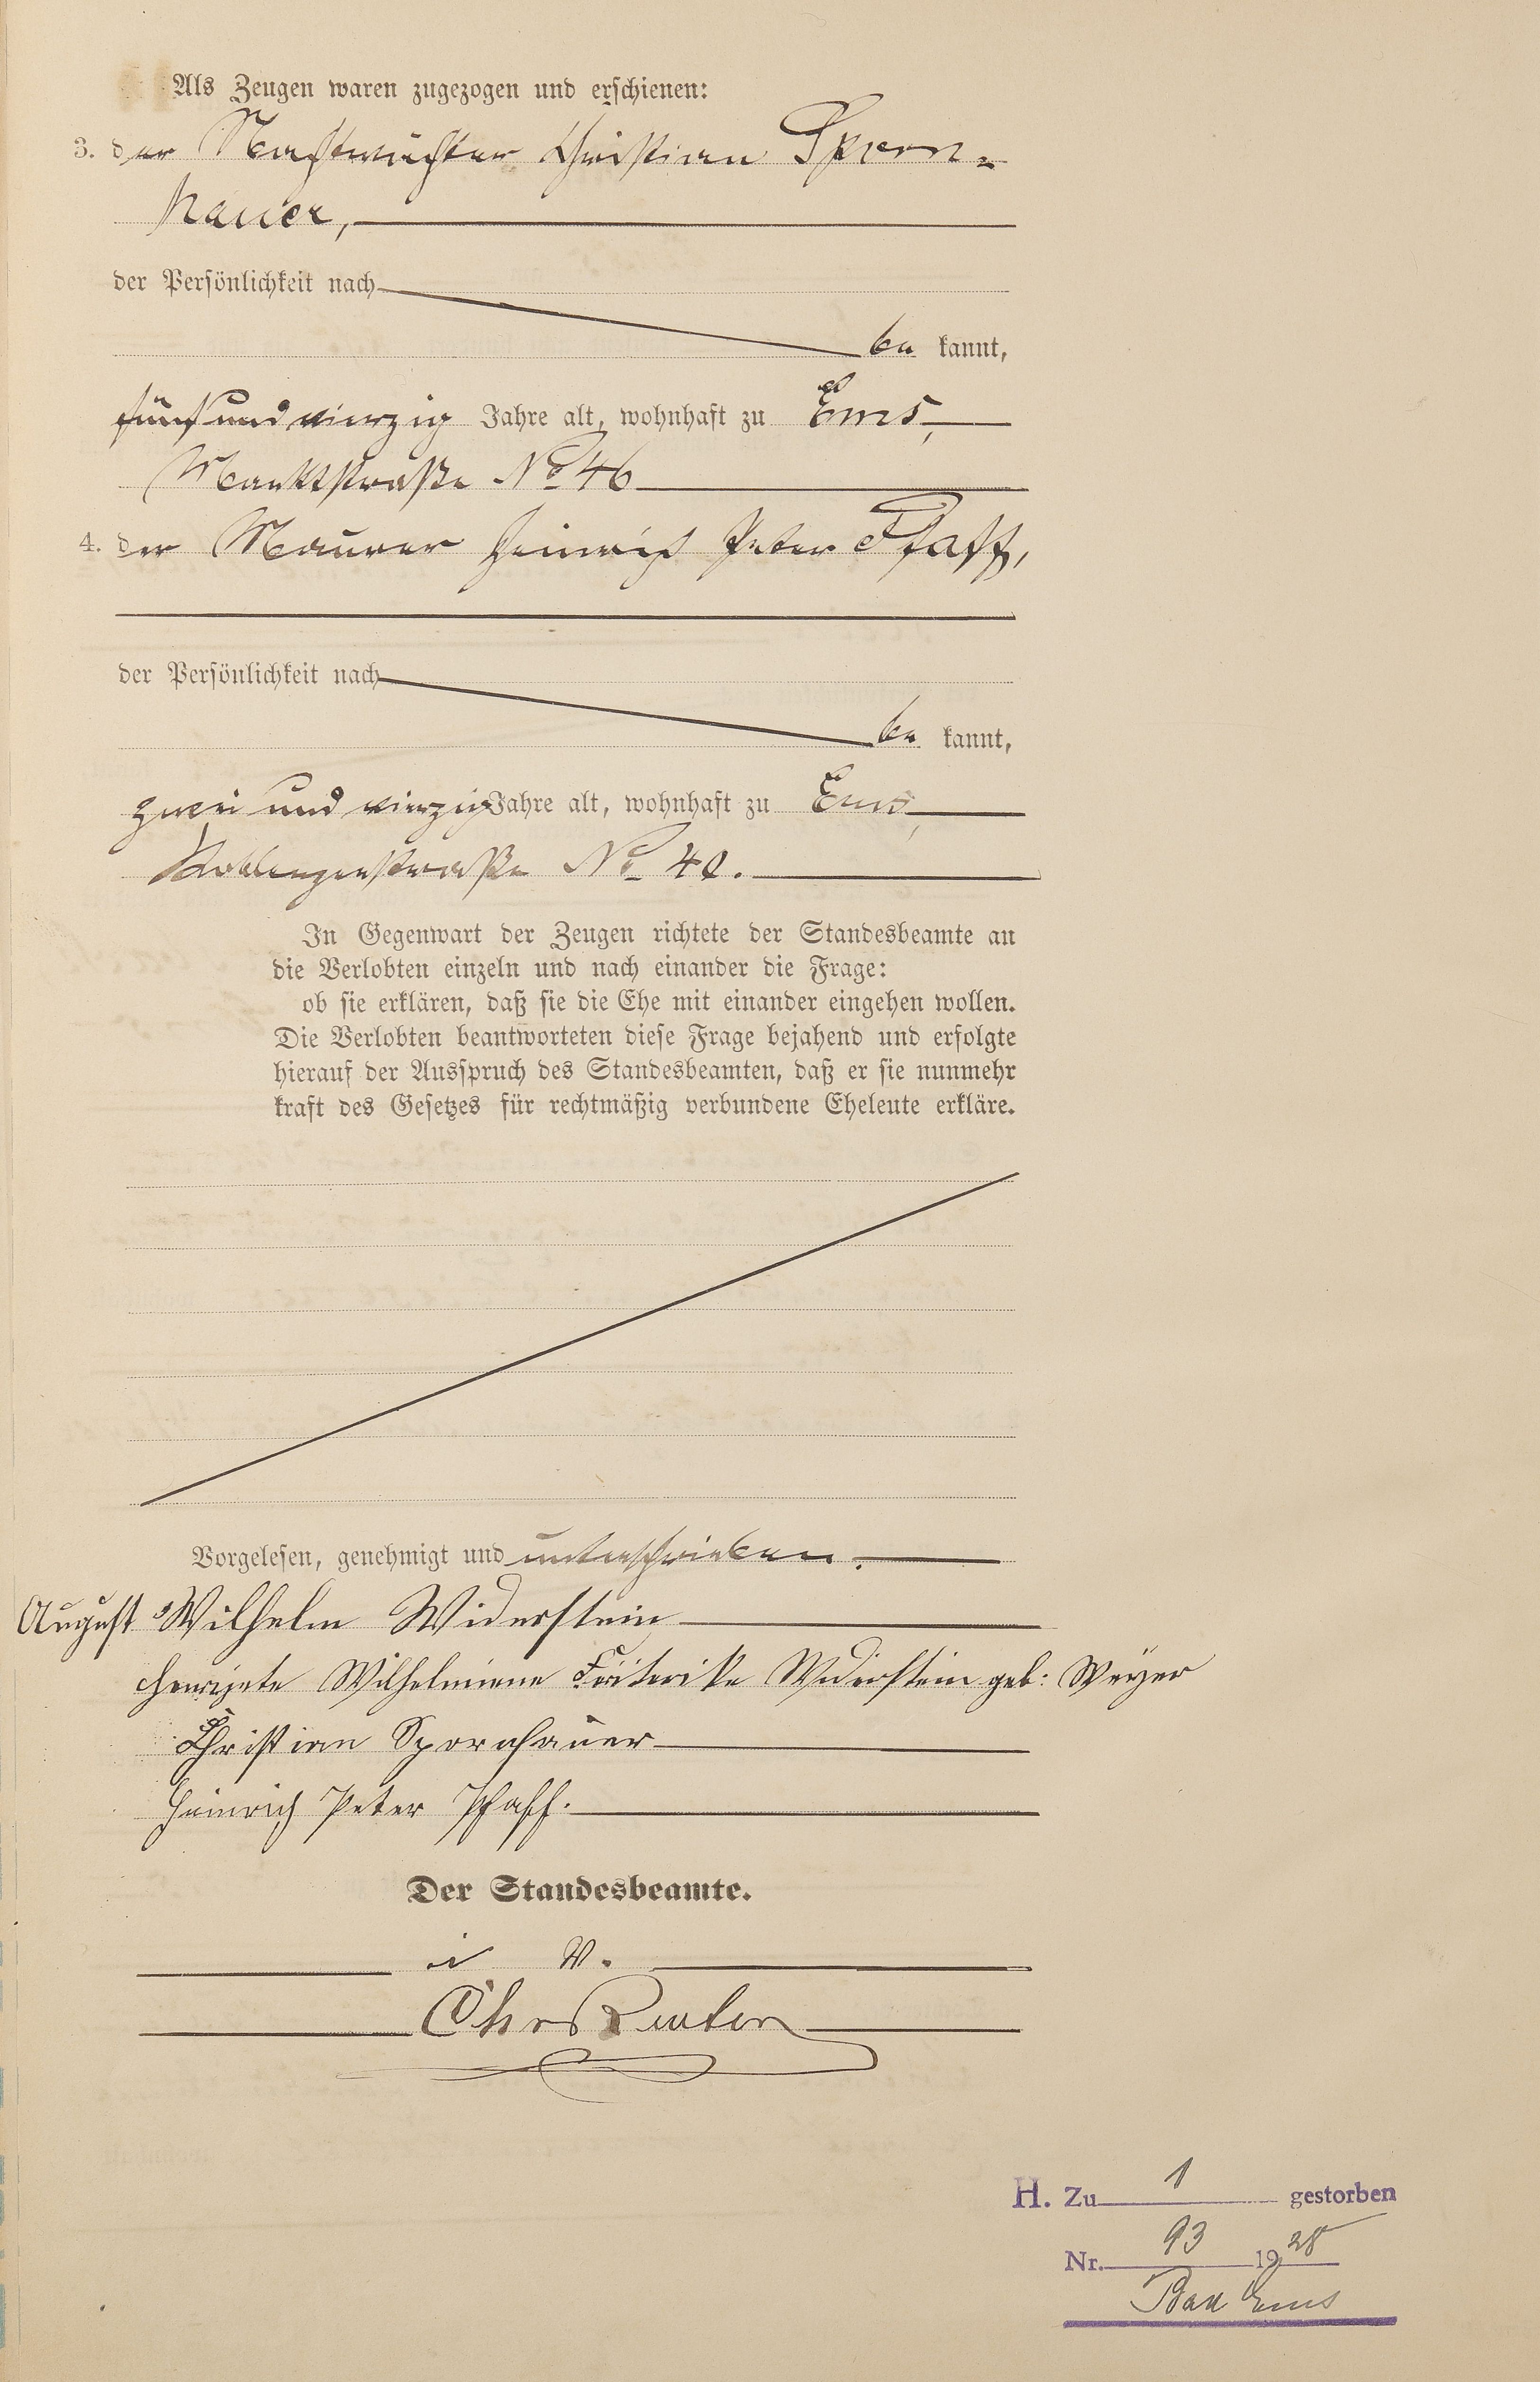 Als Zeugen waren zugezogen und erschienen:
3. der Nachtwächter Christian Sporn-
hauer,
der Persönlichkeit nach
be kannt,
fünf und vierzig Jahre alt, wohnhaft zu Ems,
Marktstraße No 46
4. der Maurer Heinrich Peter Pfaff,
der Persönlichkeit nach
be kannt,
zwei und vierzig Jahre alt, wohnhaft zu Ems,
Koblenzerstraße No 40.
In Gegenwart der Zeugen richtete der Standesbeamte an
die Verlobten einzeln und nach einander die Frage:
ob sie erklären, daß sie die Ehe mit einander eingehen wollen.
Die Verlobten beantworteten diese Frage bejahend und erfolgte
hierauf der Ausspruch des Standesbeamten, daß er sie nunmehr
kraft des Gesetzes für rechtmäßig verbundene Eheleute erkläre.
Vorgelesen, genehmigt und unterschrieben.
August Wilhelm Widerstein
Wilhelmiene Widerstein geb: Weyer
Christian Spornhauer
Heinrich Peter Pfaff.
Der Standesbeamte.
i V.
Chr
H. Zu 1 gestorben
Nr. 93 1928
Bad Ems